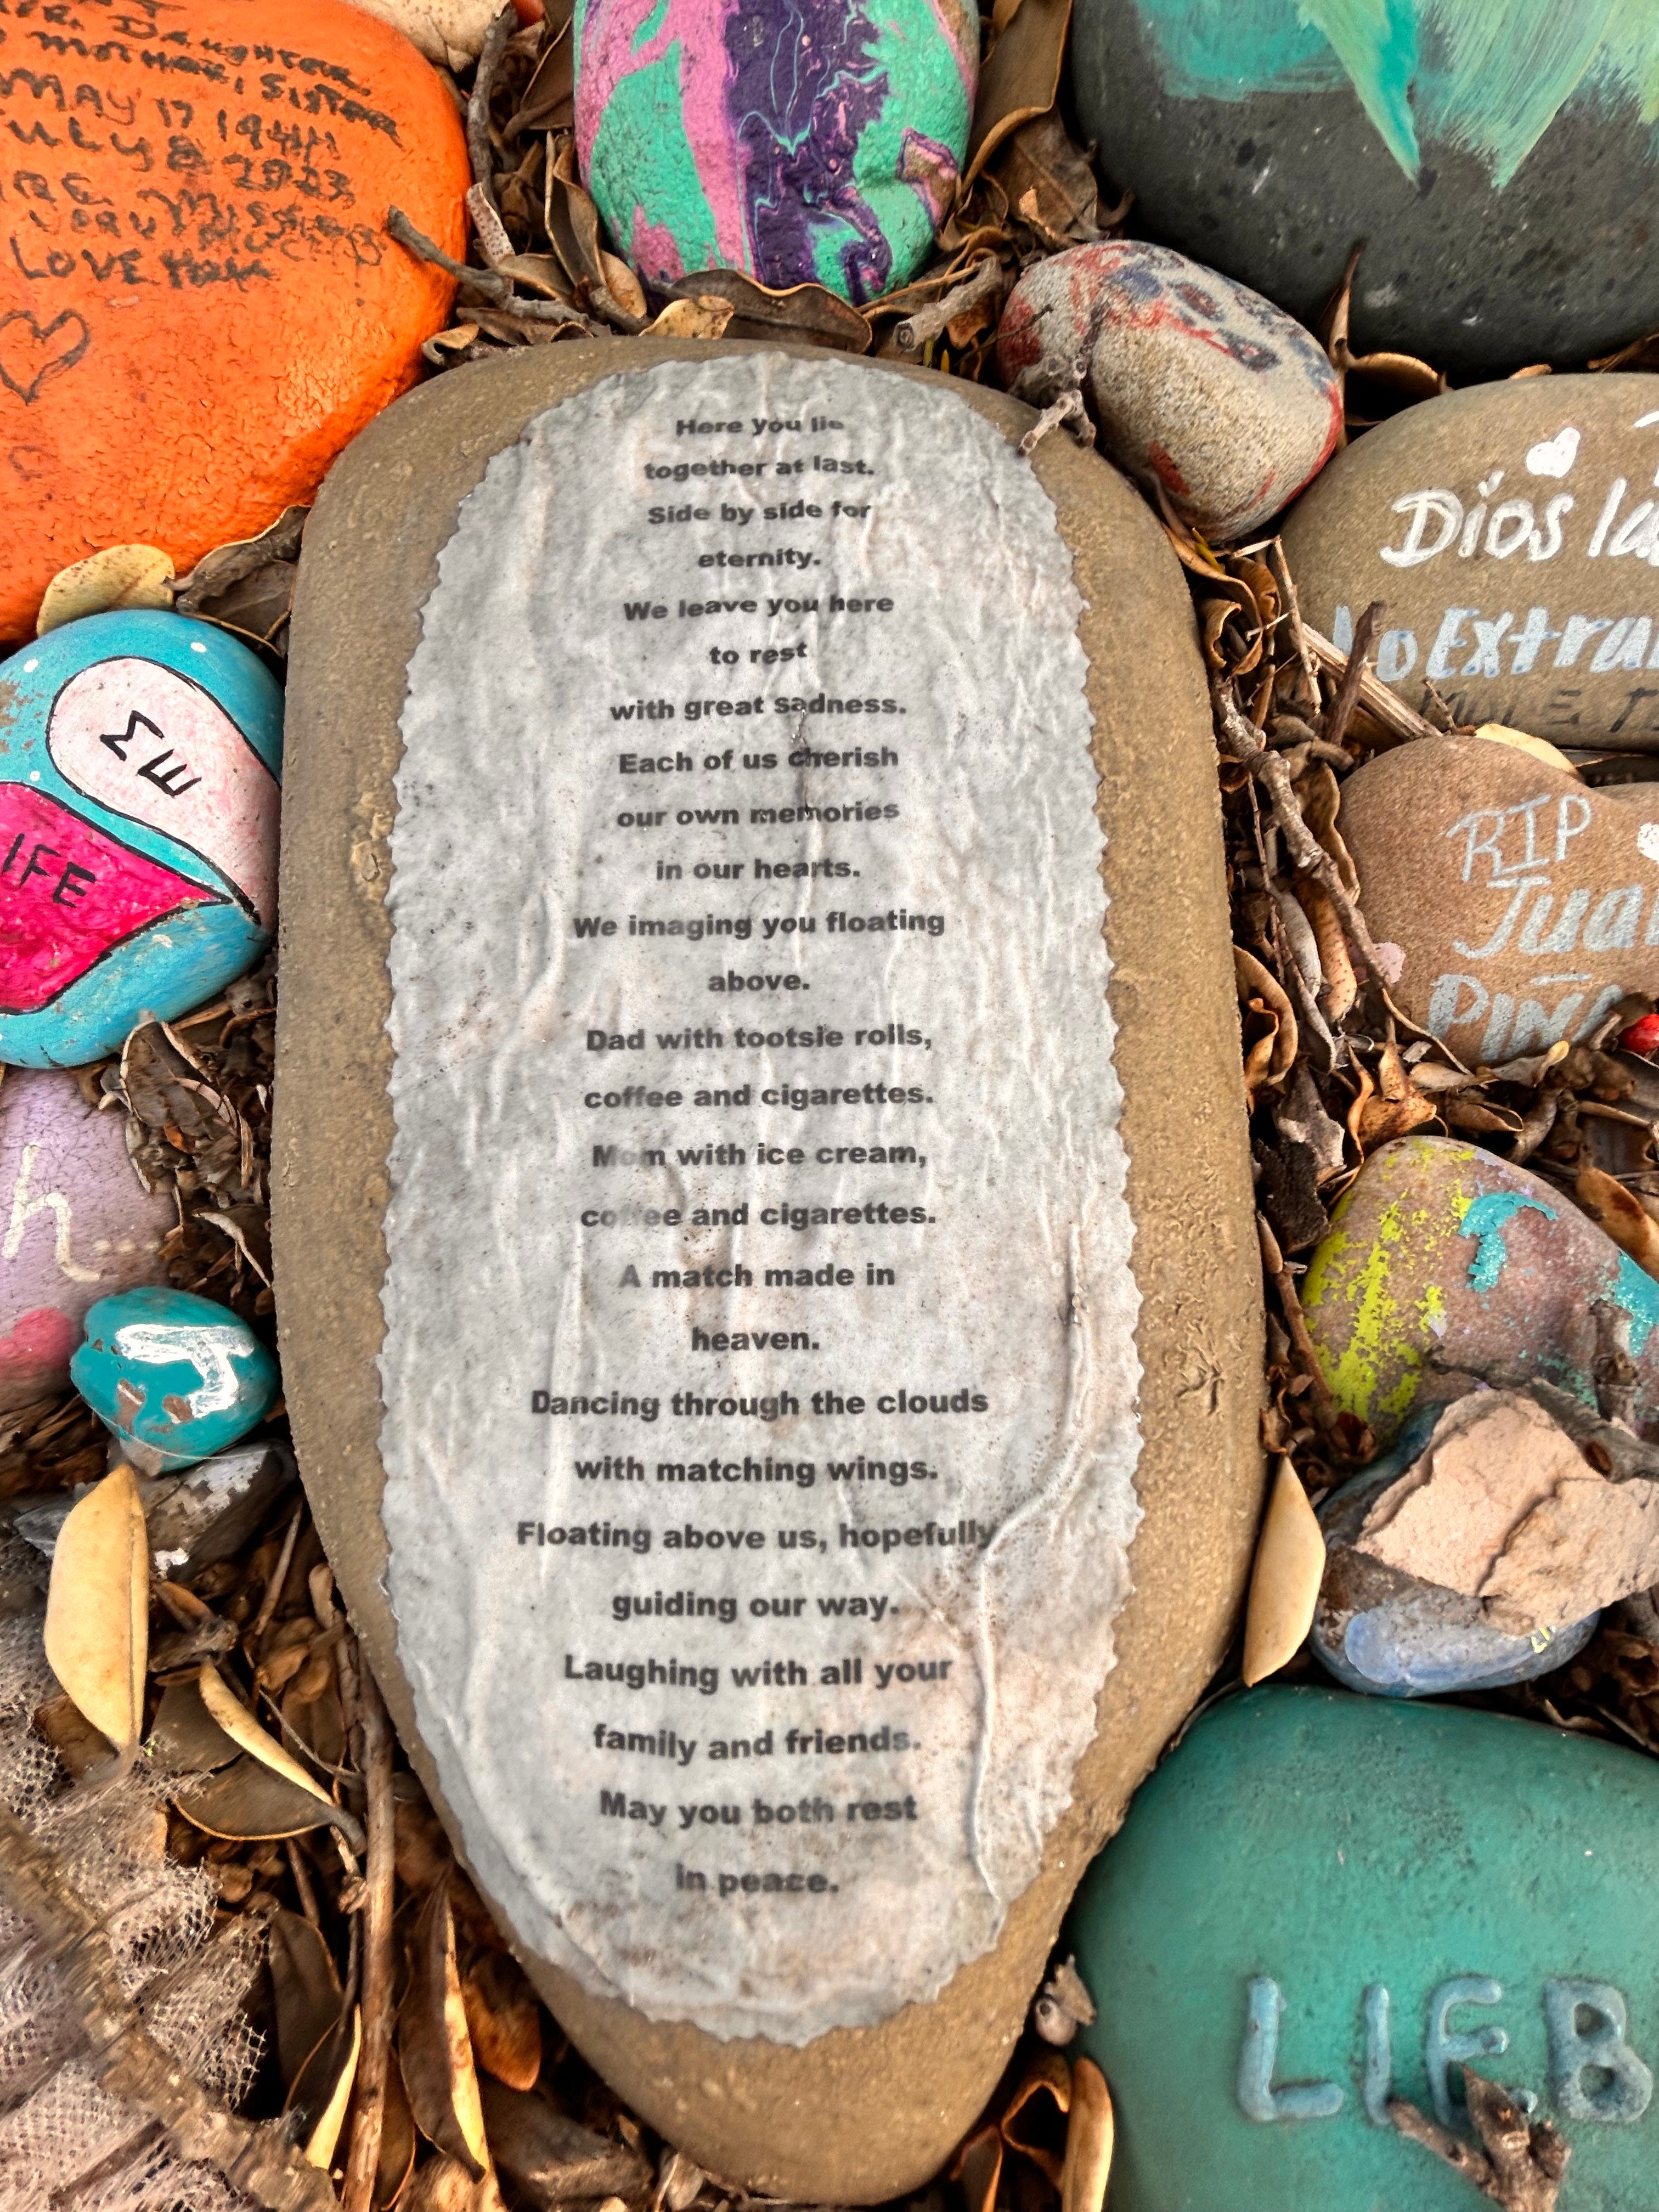 Daughter
Mother, Sister
MAY 17 1944
JULY 8 2023
LOVE You
Here you lie
together at last.
Side by side for
eternity.
We leave you here
to rest
with great sadness.
Each of us cherish
our own memories
in our hearts.
We imaging you floating
above.
Dad with tootsie rolls,
coffee and cigarettes.
Mom with ice cream,
coffee and cigarettes.
A match made in
heaven.
Dancing through the clouds
with matching wings.
Floating above us, hopefully
guiding our way.
Laughing with all your
family and friends.
May you both rest
in peace.
ME
IFE
h...
Dios la
Lo Extra
RIP
Jua
PIÑA
LIEB